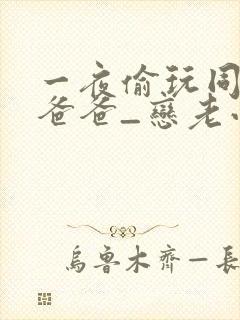 一夜偷玩同
爸爸_戀老小
烏魯木齊—長